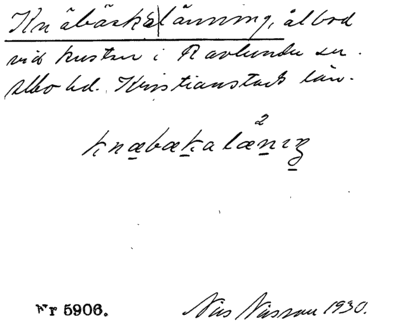 Knäbäcks|länning, ålbod
vid kusten i Ravlunda sn.
Albo hd. Kristianstads län.
2
knæbækalænɪŋ
Nr 5906.
Nils Nilsson 1930.